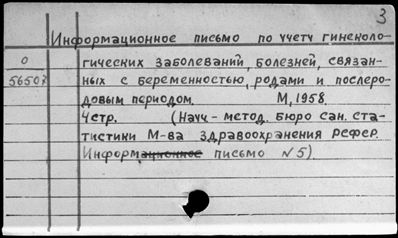 3
Информационное письмо по учету гинеколо-
0 гических заболеваний, болезней, связан-
56507 ных с беременностью, родами и послеро-
довым периодом. М, 1958.
4стр. (Научн-метод. бюро сан. ста-
тистики М-ва здравоохранения рефер.
Информационное письмо N 5).